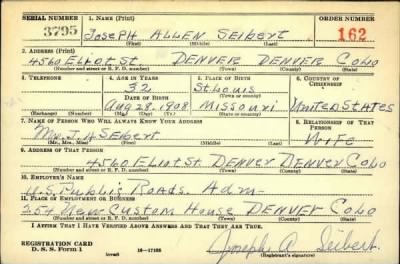 SERIAL NUMBER 1. NAME (Print) ORDER NUMBER
3795 JOSEPH ALLEN SEIBERT 162
(First) (Middle) (Last)
2. ADDRESS (Print)
4560 ELIOT ST. DENVER DENVER COLO
(Number and street or R. F. D. number) (Town) (County) (State)
3. TELEPHONE 4. AGE IN YEARS 5. PLACE OF BIRTH 6. COUNTRY OF CITIZENSHIP
32 St Louis
DATE OF BIRTH (Town or county)
Aug 28. 1908 Missouri United States
(Exchange) (Number) (Mo.) (Day) (Yr.) (State or country)
7. NAME OF PERSON WHO WILL ALWAYS KNOW YOUR ADDRESS 8. RELATIONSHIP OF THAT PERSON
J. A SEIBERT WIFE
(Mr., Mrs., Miss) (First) (Middle) (Last)
9. ADDRESS OF THAT PERSON
4560 Eliot St. DENVER DENVER COLO
(Number and street or R. F. D. number) (Town) (County) (State)
10. EMPLOYER'S NAME
U.S. Public Roads. Adm-
11. PLACE OF EMPLOYMENT OR BUSINESS
254 New Custom House DENVER COLO
(Number and street or R. F. D. number) (Town) (County) (State)
I AFFIRM THAT I HAVE VERIFIED ABOVE ANSWERS AND THAT THEY ARE TRUE.
REGISTRATION CARD
D. S. S. Form 1 (over) 16—17105 Joseph A Seibert.
(Registrant's signature)